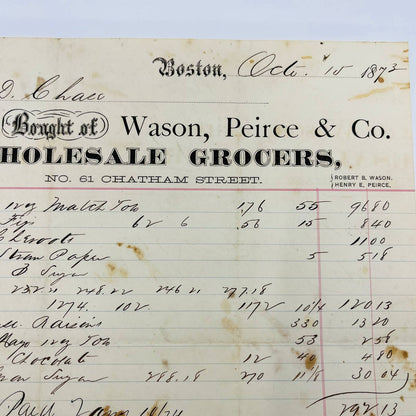 Boston, Octo. 15 1873
D. Chace
Bought of Wason, Peirce & Co.
HOLESALE GROCERS,
NO. 61 CHATHAM STREET.
ROBERT B. WASON.
HENRY E. PEIRCE.
176 55 96 80
Figs 62 6 56 15 8 40
Cheroots 11 00
Straw Paper 5 5 18
3 Sugar
248.22 246 21 277.18
1274 102 1172 10 1/4 120 13
Raisins 330 13 20
53 2 58
Chocolate 12 40 4 80
Sugar 288.18 270 11 1/8 30 04
Paid 292 13